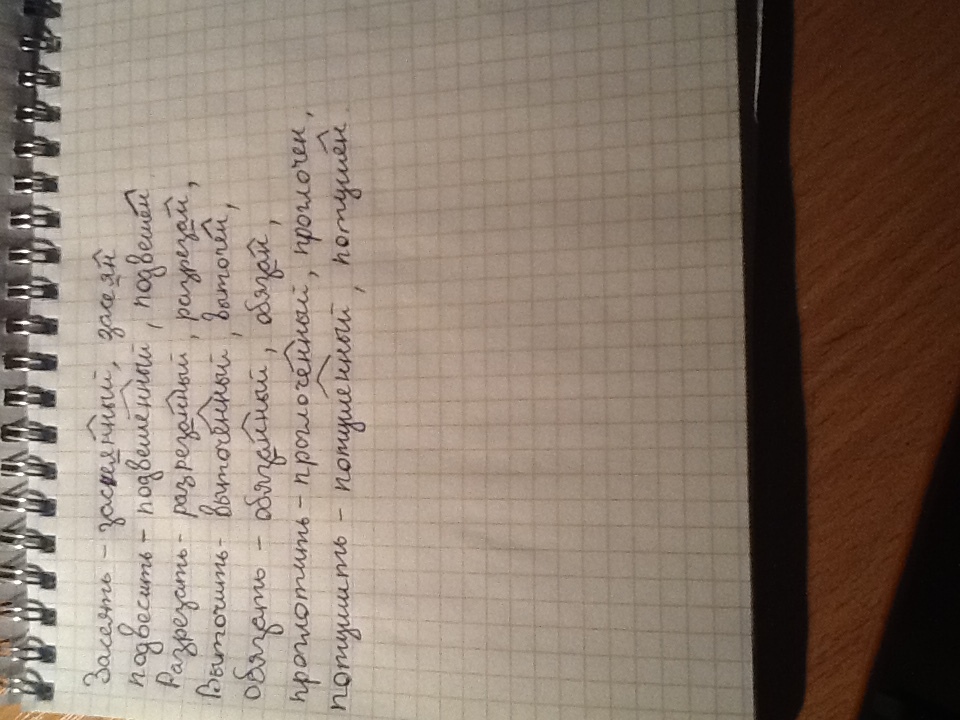 Засеять - засеянный, засеян
подвесить - подвешенный, подвешен
Разрезать - разрезанный, разрезан,
Выточить - выточенный, выточен,
обязать - обязанный, обязан,
проглотить - проглоченный, проглочен,
потушить - потушенный, потушен.